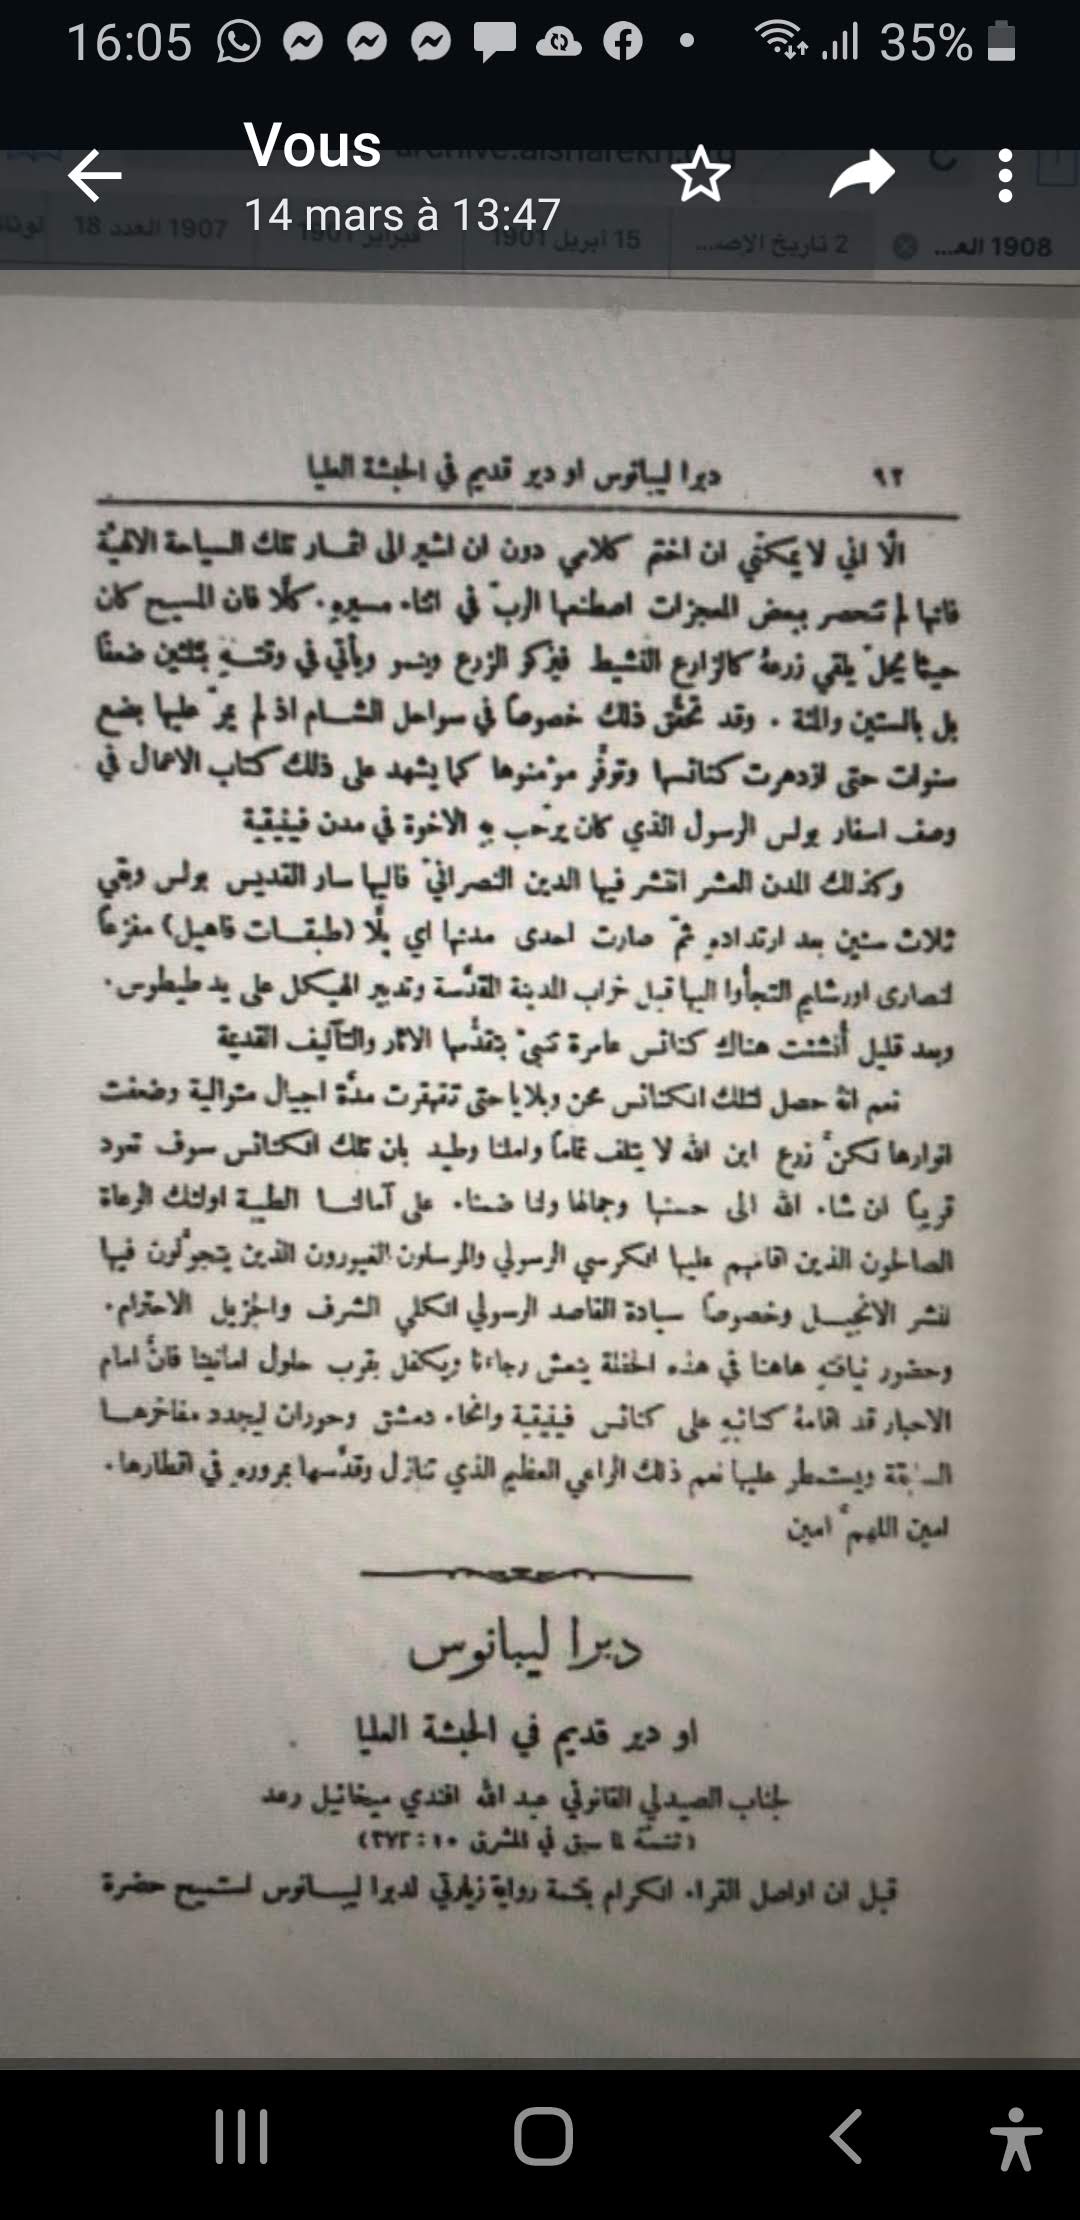 16:05
35%
Vous
14 mars à 13:47
1908 الع...
2 تاريخ الإص...
15 أبريل 1901
فبراير 1901
1907 العدد 18
٩٢
ديرا ليبانوس او دير قديم في الحبشة العليا
الّا اني لا يمكنّي ان اختم كلامي دون ان اشير الى اثمار تلك السياحة الالهيّة
فانها لم تنحصر ببعض المعجزات اصطنعها الربّ في اثناء مسيرهِ. كلَّا فان المسيح كان
حيثما يحلّ يلقي زرعهُ كالزارع النشيط فيزكو الزرع وينمو ويأتي في وقتهِ بثلثين ضعفًا
بل بالستين والمئة . وقد تحقَّق ذلك خصوصًا في سواحل الشام اذ لم يمرّ عليها بضع
سنوات حتى ازدهرت كنائسها وتوفَّر مؤمنوها كما يشهد على ذلك كتاب الاعمال في
وصف اسفار بولس الرسول الذي كان يرحّب بهِ الاخوة في مدن فينيقية
وكذلك المدن العشر انتشر فيها الدين النصرانيّ فاليها سار القديس بولس وبقي
ثلاث سنين بعد ارتدادهِ ثمّ صارت احدى مدنها اي بلَّا (طبقات فاهيل) مفزعًا
لنصارى اورشليم التجأوا اليها قبل خراب المدينة المقدَّسة وتدمير الهيكل على يد طيطوس.
وبعد قليل أُنشئت هناك كنائس عامرة تنبئ بتقدُّمها الاثار والتآليف القديمة
نعم انهُ حصل لتلك الكنائس محن وبلايا حتى تقهقرت مدَّة اجيال متوالية وضعفت
انوارها لكنَّ زرع ابن الله لا يتلف تمامًا واملنا وطيد بان تلك الكنائس سوف تعود
قريبًا ان شاء الله الى حسنها وجمالها ولنا ضمناء على آمالنا الطيبة اولئك الرعاة
الصالحون الذين اقامهم عليها الكرسي الرسولي والمرسلون الغيورون الذين يتجوَّلون فيها
لنشر الانجيل وخصوصًا سيادة القاصد الرسولي الكلي الشرف والجزيل الاحترام.
وحضور نيافتهِ هاهنا في هذه الحفلة ينعش رجاءنا ويكفل بقرب حلول امانينا فانَّ امام
الاحبار قد اقامهُ كنائبهِ على كنائس فينيقية وانحاء دمشق وحوران ليجدد مفاخرها
السابقة ويستمطر عليها نعم ذلك الراعي العظيم الذي تنازل وقدَّسها بمرورهِ في اقطارها.
امين اللهمَّ امين
ديرا ليبانوس
او دير قديم في الحبشة العليا
لجناب الصيدلي القانوني عبد الله افندي ميخائيل رعد
(تتمَّة لما سبق في المشرق ١٠: ٣٧٢)
قبل ان اواصل القراء الكرام بتتمة رواية زيارتي لديرا ليبانوس استميح حضرة